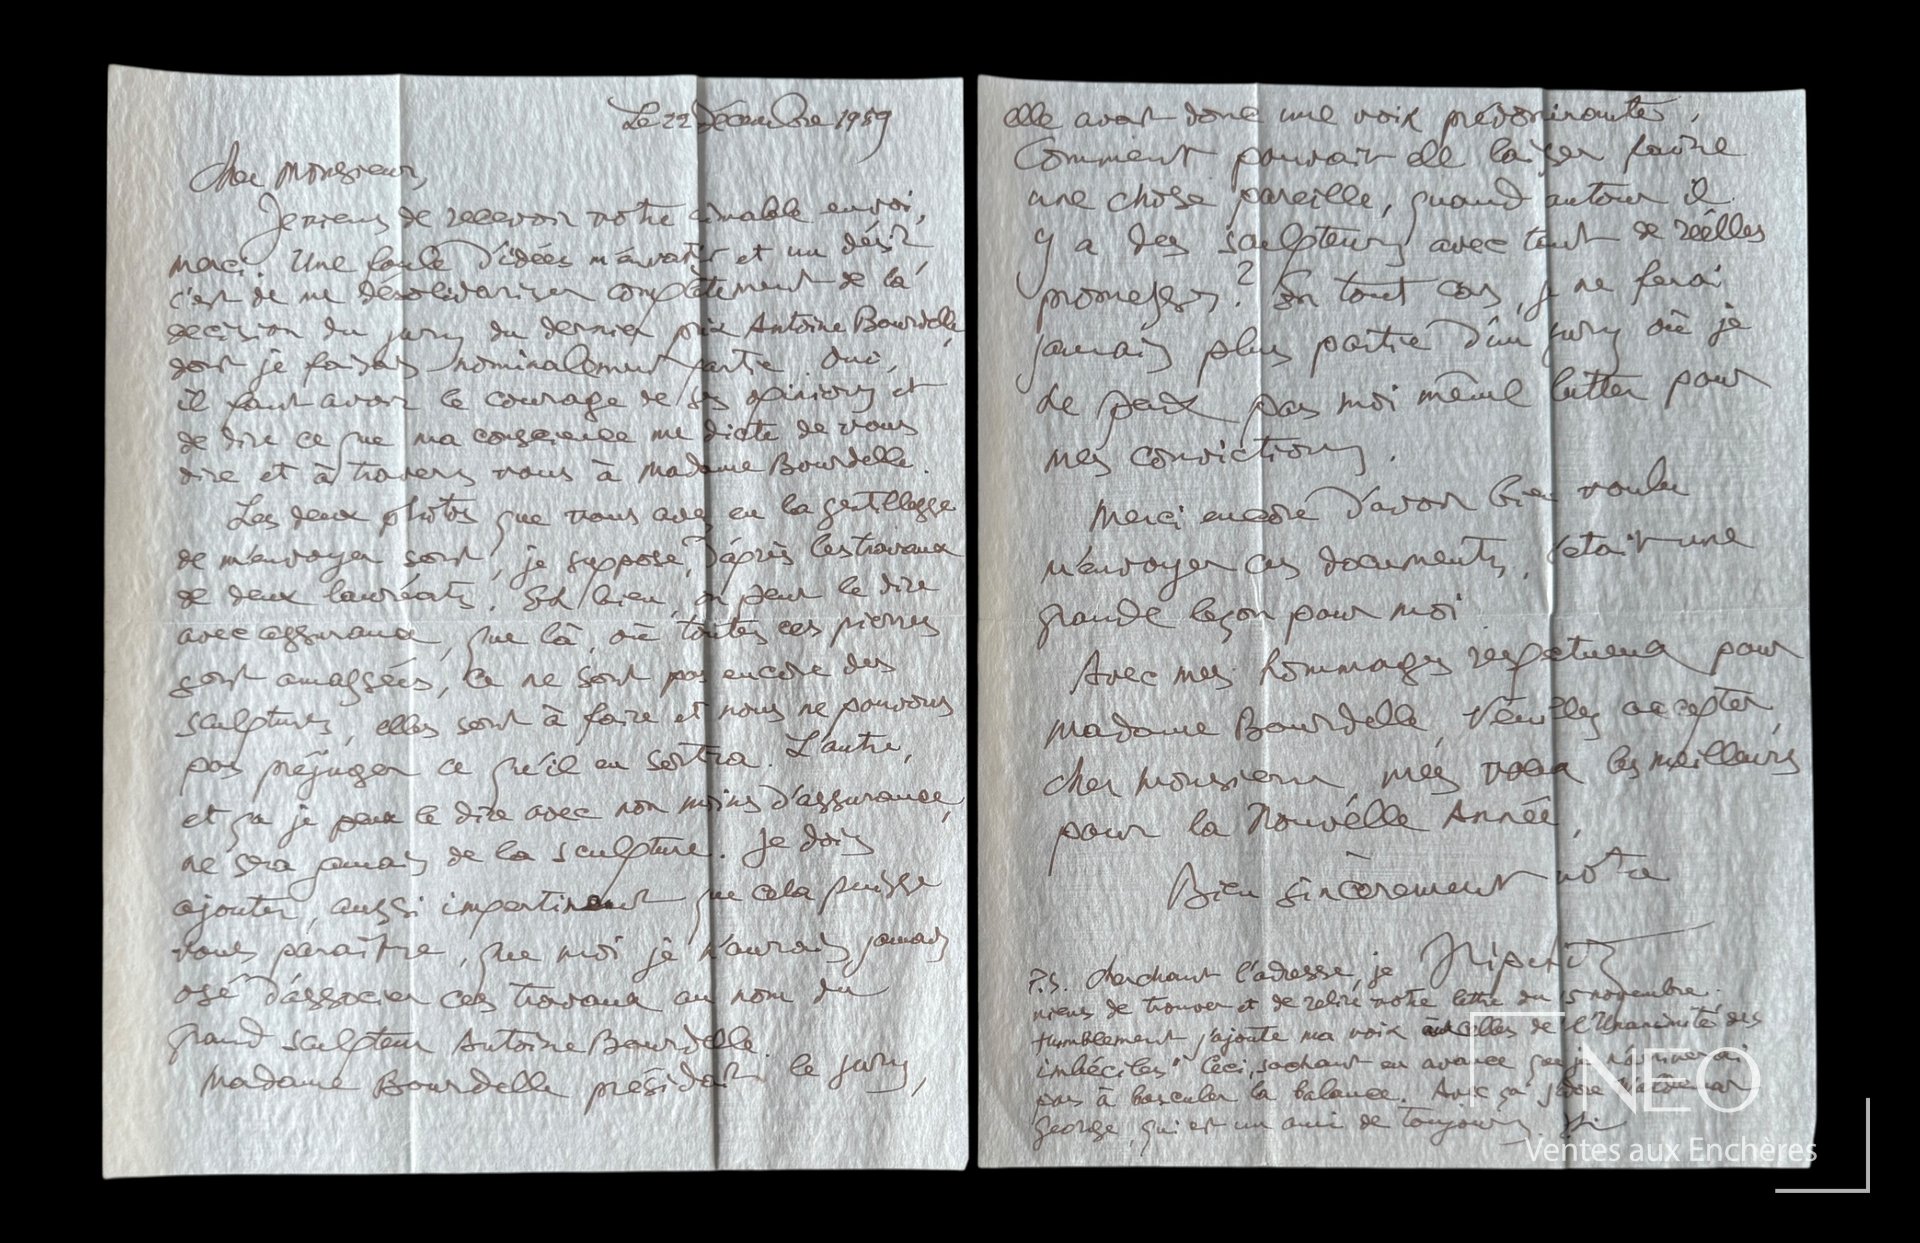 Le 22 Décembre 1959
Cher Monsieur,
Je viens de recevoir votre aimable envoi,
merci. Une foule d'idées et un désir,
c'est de me désolidariser complètement de la
décision du jury du dernier prix Antoine Bourdelle,
dont je faisais nominalement partie. Oui,
il faut avoir le courage de ses opinions et
de dire ce que ma conscience me dicte de vous
dire et à travers vous à Madame Bourdelle.
Les deux photos que vous avez eu la gentillesse
de m'envoyer sont, je suppose, d'après les travaux
de deux lauréats. Eh bien, on peut le dire
avec assurance, que là, où toutes ces pierres
sont amassées, ce ne sont pas encore des
sculptures, elles sont à faire et nous ne pouvons
pas préjuger ce qu'il en sortira. L'autre,
et ça je peux le dire avec non moins d'assurance,
ne sera jamais de la sculpture. Je dois
ajouter, aussi impertinent que cela puisse
vous paraître, que moi je n'aurais jamais
osé d'associer ces travaux au nom du
grand sculpteur Antoine Bourdelle.
Madame Bourdelle présidait le jury,
elle avait donc une voix prédominante,
Comment pouvait elle laisser faire
une chose pareille, quand autour il
y a des sculpteurs avec tant de réelles
promesses? En tout cas, je ne ferai
jamais plus partie d'un jury où je
ne peux pas moi même lutter pour
mes convictions.
Merci encore d'avoir bien voulu
m'envoyer ces documents, c'etait une
grande leçon pour moi
Avec mes hommages respectueux pour
Madame Bourdelle, Veuillez accepter,
cher Monsieur, mes vœux les meilleurs
pour la Nouvelle Année,
Bien sincèrement vôtre
Lipchitz
P.S. Cherchant l'adresse, je
viens de trouver et de relire votre lettre du 5 novembre.
Humblement j'ajoute ma voix celles de "l'Unanimité des
imbéciles" Ceci, sachant en avance que je n'arriverai
pas à basculer la balance. Avec ça j'adore
George, qui est un ami de toujours.
NEO
Ventes aux Enchères